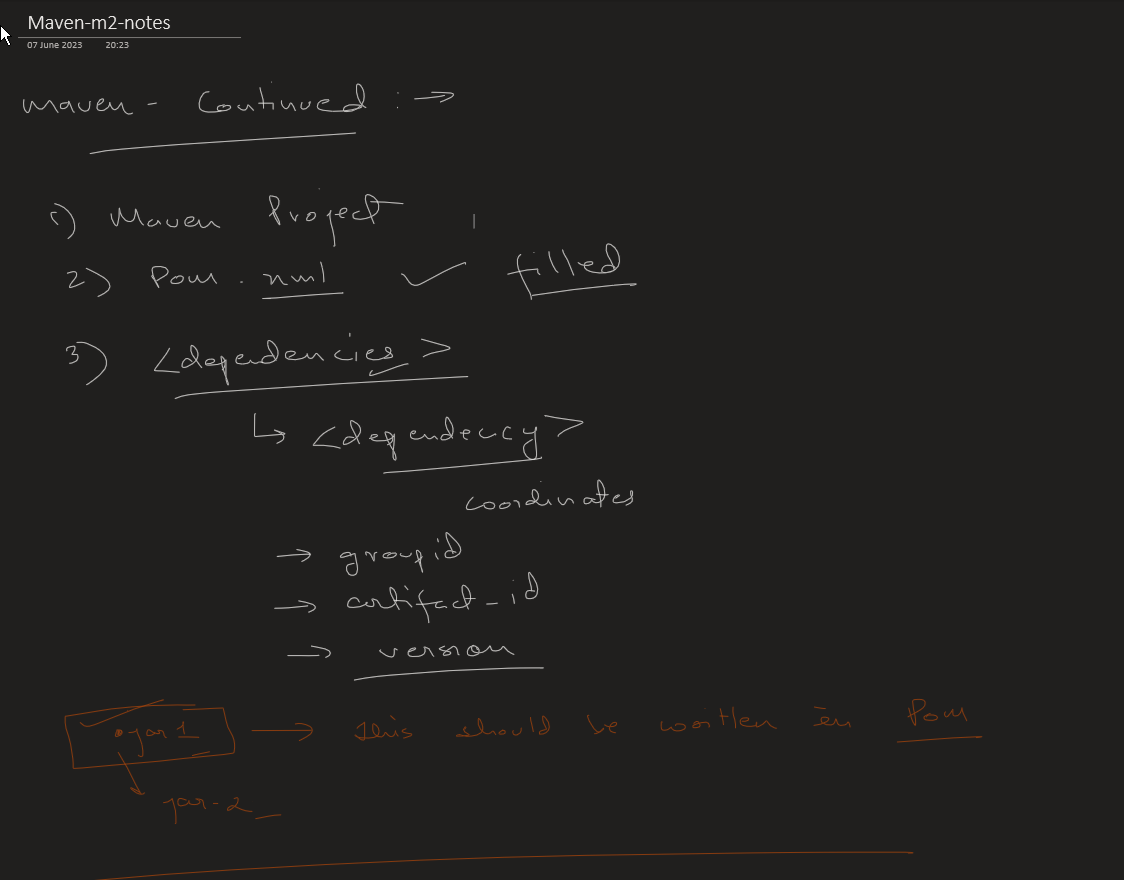 Maven-m2-notes
07 June 2023 20:23
maven - Continued : →
1) Maven Project
2) Pom . xml ✓ filled
3) <dependencies>
↳ <dependency>
coordinates
→ groupid
→ artifact-id
→ version
jar 1 → This should be written in Pom
jar-2